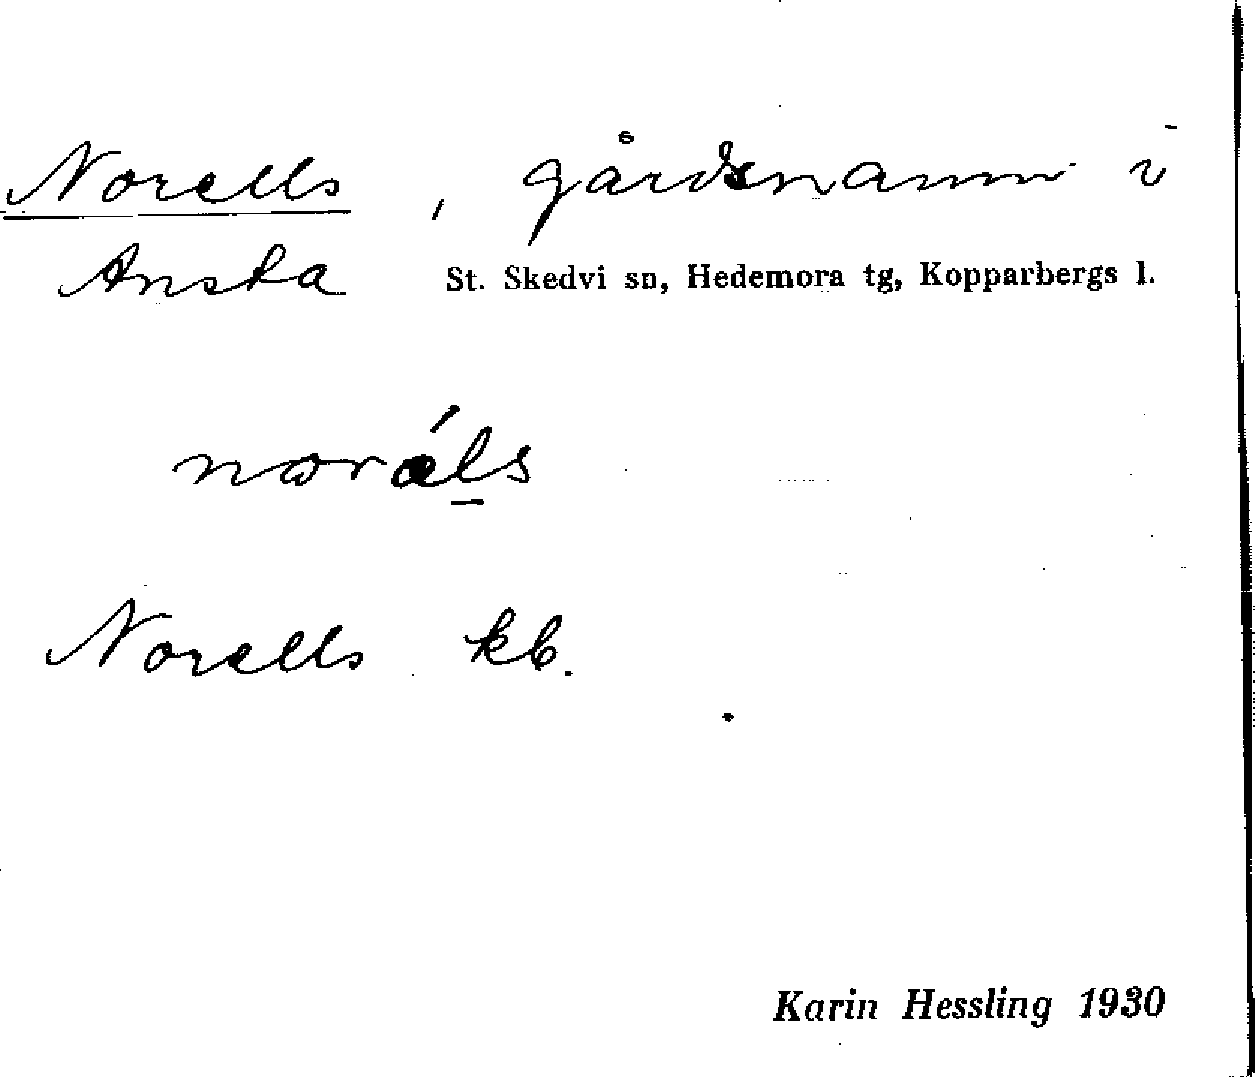 Norells, gårdsnamn i
Ansta St. Skedvi sn, Hedemora tg, Kopparbergs l.
norǽls
Norells kb.
Karin Hessling 1930